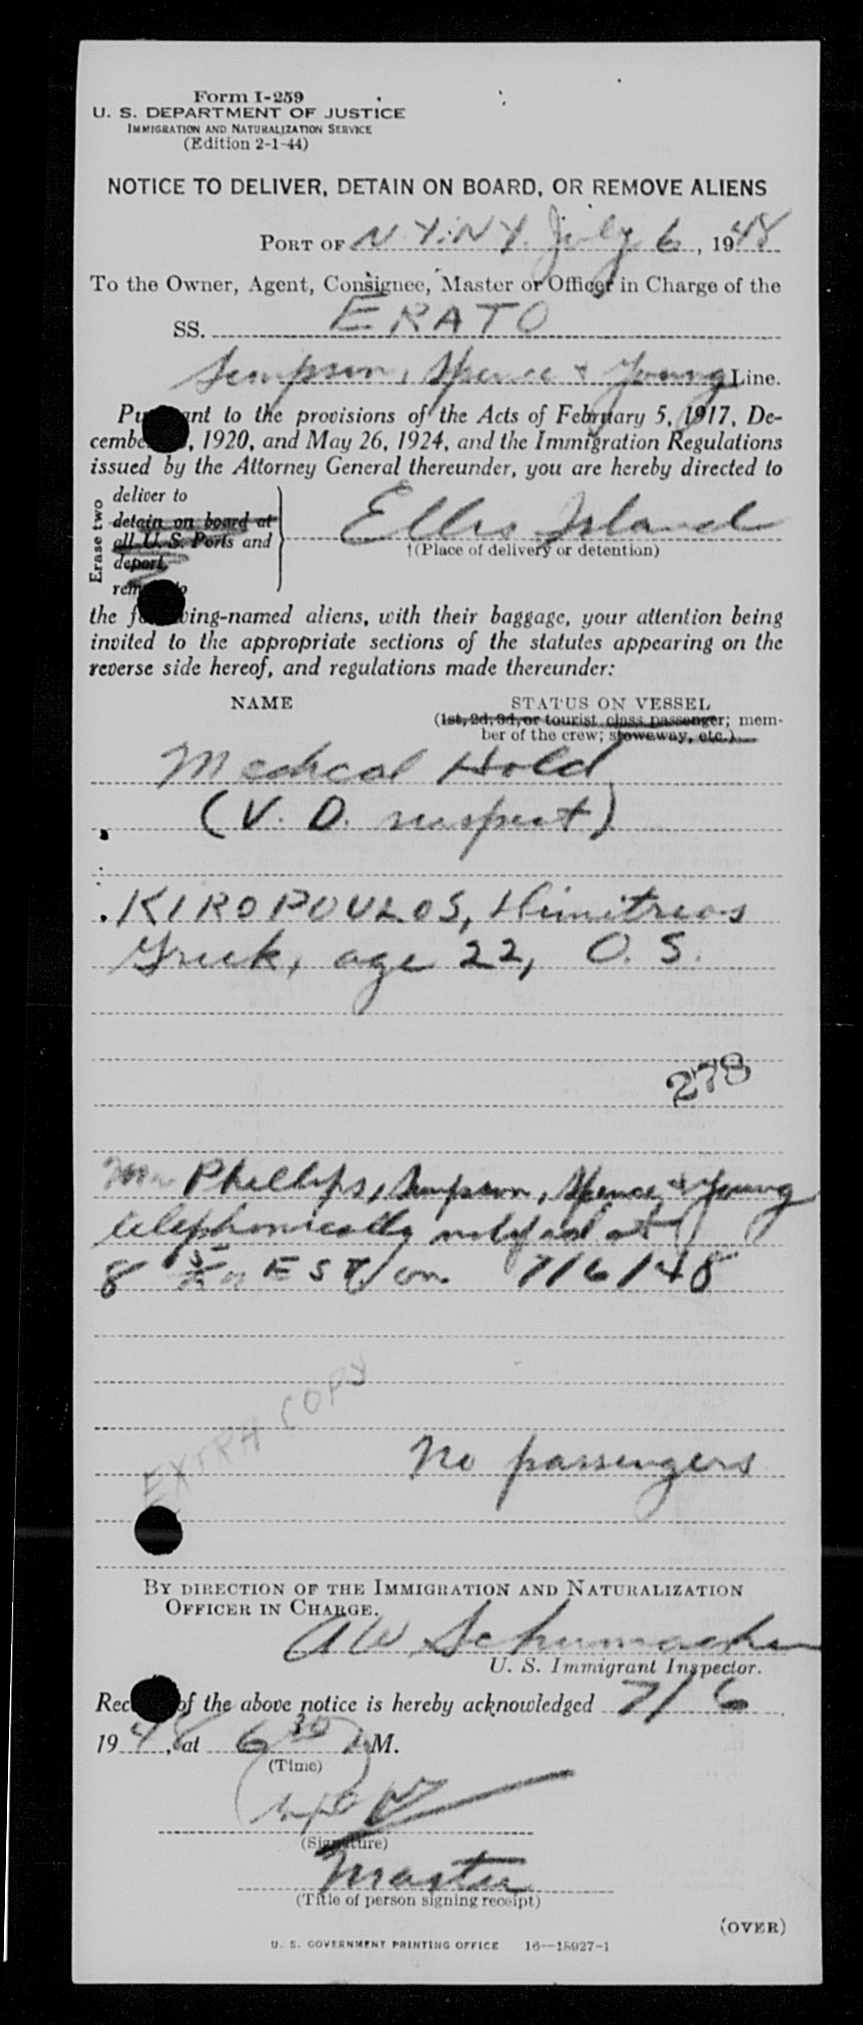 Form I-259
U. S. DEPARTMENT OF JUSTICE
IMMIGRATION AND NATURALIZATION SERVICE
(Edition 2-1-44)
NOTICE TO DELIVER, DETAIN ON BOARD, OR REMOVE ALIENS
PORT OF N.Y. N.Y. July 6, 1948
To the Owner, Agent, Consignee, Master or Officer in Charge of the
SS. ERATO
Simpson, Spence & Young Line.
Pursuant to the provisions of the Acts of February 5, 1917, De-
cember , 1920, and May 26, 1924, and the Immigration Regulations
issued by the Attorney General thereunder, you are hereby directed to
Erase two
deliver to
detain on board at
all U. S. Ports and
deport
remove to
Ellis Island
†(Place of delivery or detention)
the following-named aliens, with their baggage, your attention being
invited to the appropriate sections of the statutes appearing on the
reverse side hereof, and regulations made thereunder:
NAME STATUS ON VESSEL
(1st, 2d, 3d, or tourist class passenger; mem-
ber of the crew; stowaway, etc.)
Medical Hold
(V. D. suspect)
KIROPOULOS, Dimitrios
Greek, age 22, O. S.
278
Mr Phillips, Simpson, Spence & Young
telephonically notified at
8 EST on 7/6/48
EXTRA COPY
No passengers
BY DIRECTION OF THE IMMIGRATION AND NATURALIZATION
OFFICER IN CHARGE.
AW Schumacher
U. S. Immigrant Inspector.
Receipt of the above notice is hereby acknowledged 7/6
1948, at 6 30 M.
(Time)
(Signature)
Master
(Title of person signing receipt)
(OVER)
U. S. GOVERNMENT PRINTING OFFICE 16—18027-1